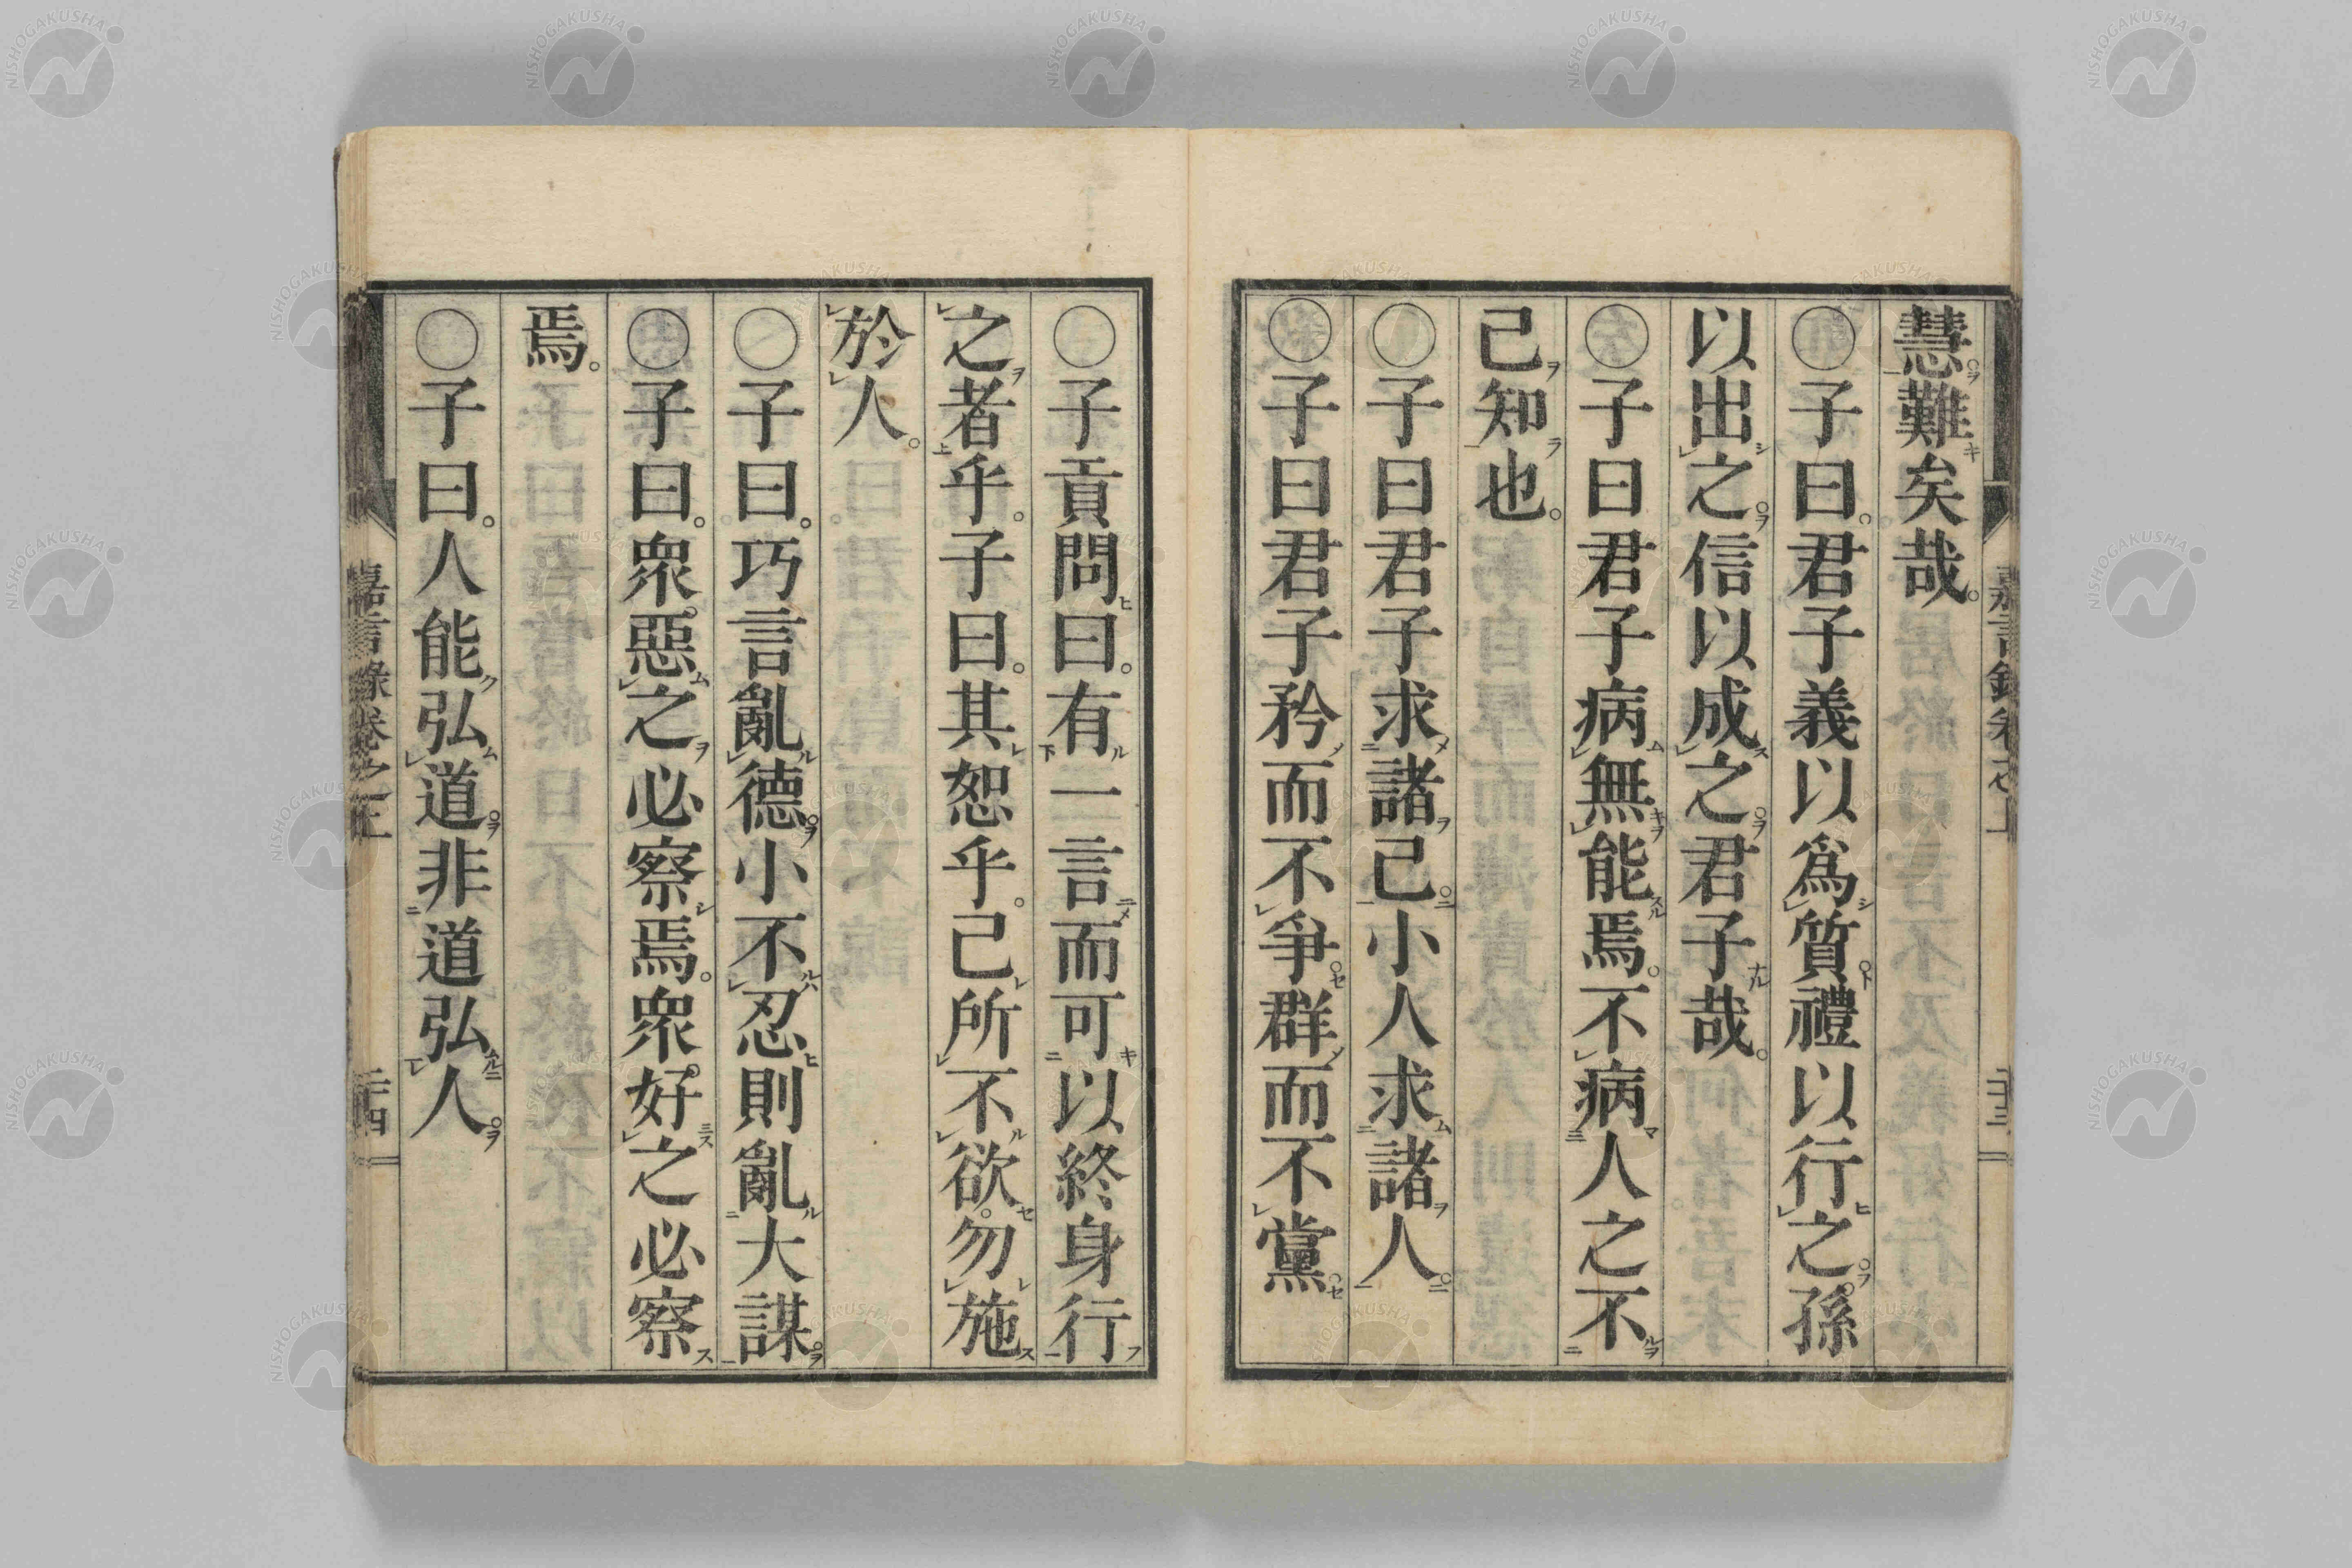 慧難矣哉。
○子曰。君子義以爲質禮以行之。孫
以出之。信以成之。君子哉。
○子曰君子病無能焉。不病人之不
己知也。
○子曰君子求諸己小人求諸人
○子曰君子矜而不爭群而不黨
嘉言錄卷之上
二十三
○子貢問曰。有一言而可以終身行
之者乎。子曰。其恕乎。己所不欲。勿施
於人。
○子曰。巧言亂德小不忍則亂大謀
○子曰。衆惡之必察焉。衆好之必察
焉。
○子曰。人能弘道非道弘人
嘉言錄卷之上
二十四
NISHOGAKUSHA